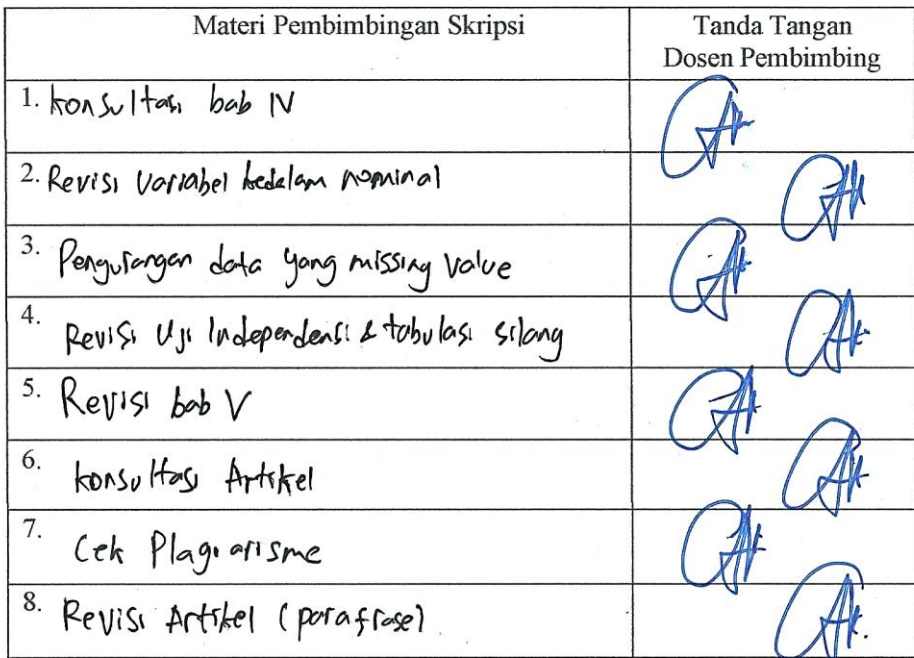 Materi Pembimbingan Skripsi
Tanda Tangan
Dosen Pembimbing
1. Konsultasi bab IV
2. Revisi Variabel kedalam nominal
3. Pengurangan data yang missing value
4. Revisi Uji Independensi & tabulasi silang
5. Revisi bab V
6. konsultasi Artikel
7. Cek Plagiarisme
8. Revisi Artikel (parafrase)